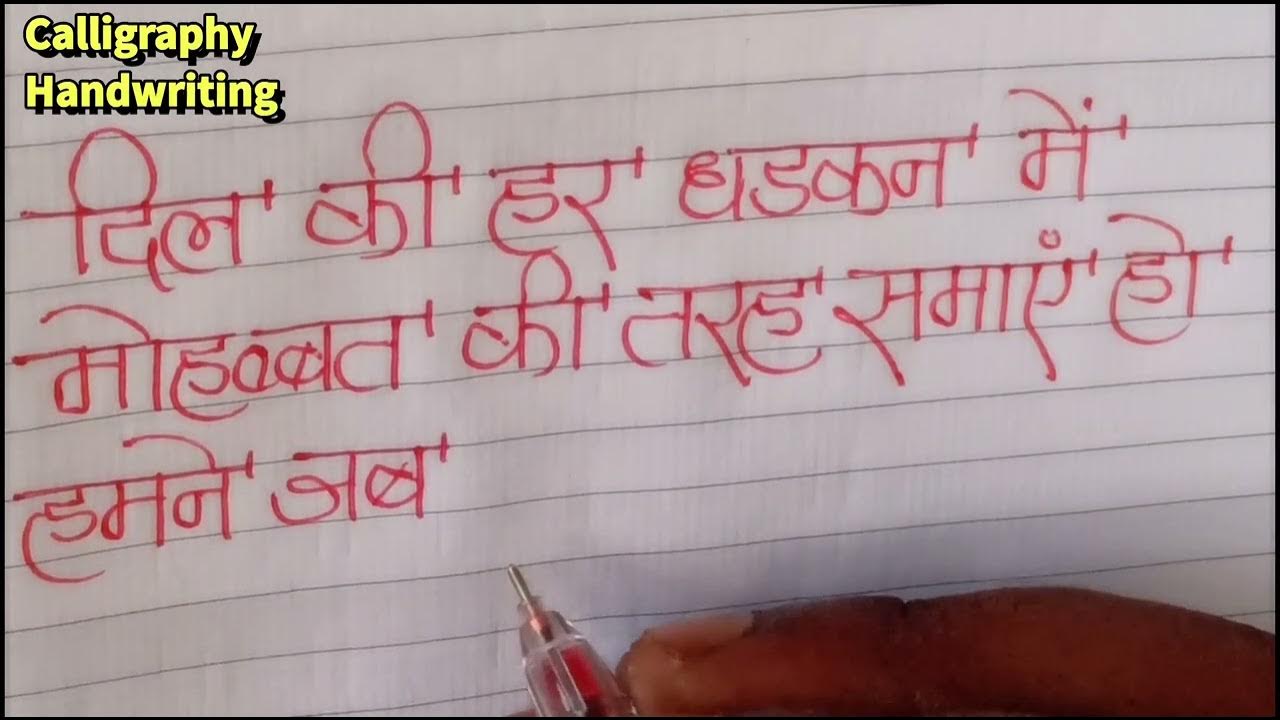 Calligraphy
Handwriting
दिल की हर धडकन में
मोहब्बत की तरह समाएं हो
हमने जब